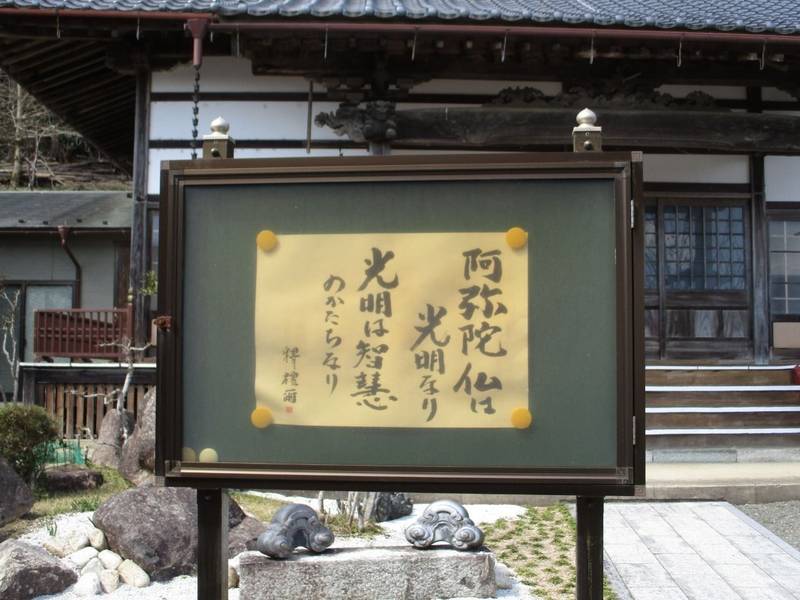 阿弥陀仏は
光明なり
光明は智慧
のかたちなり